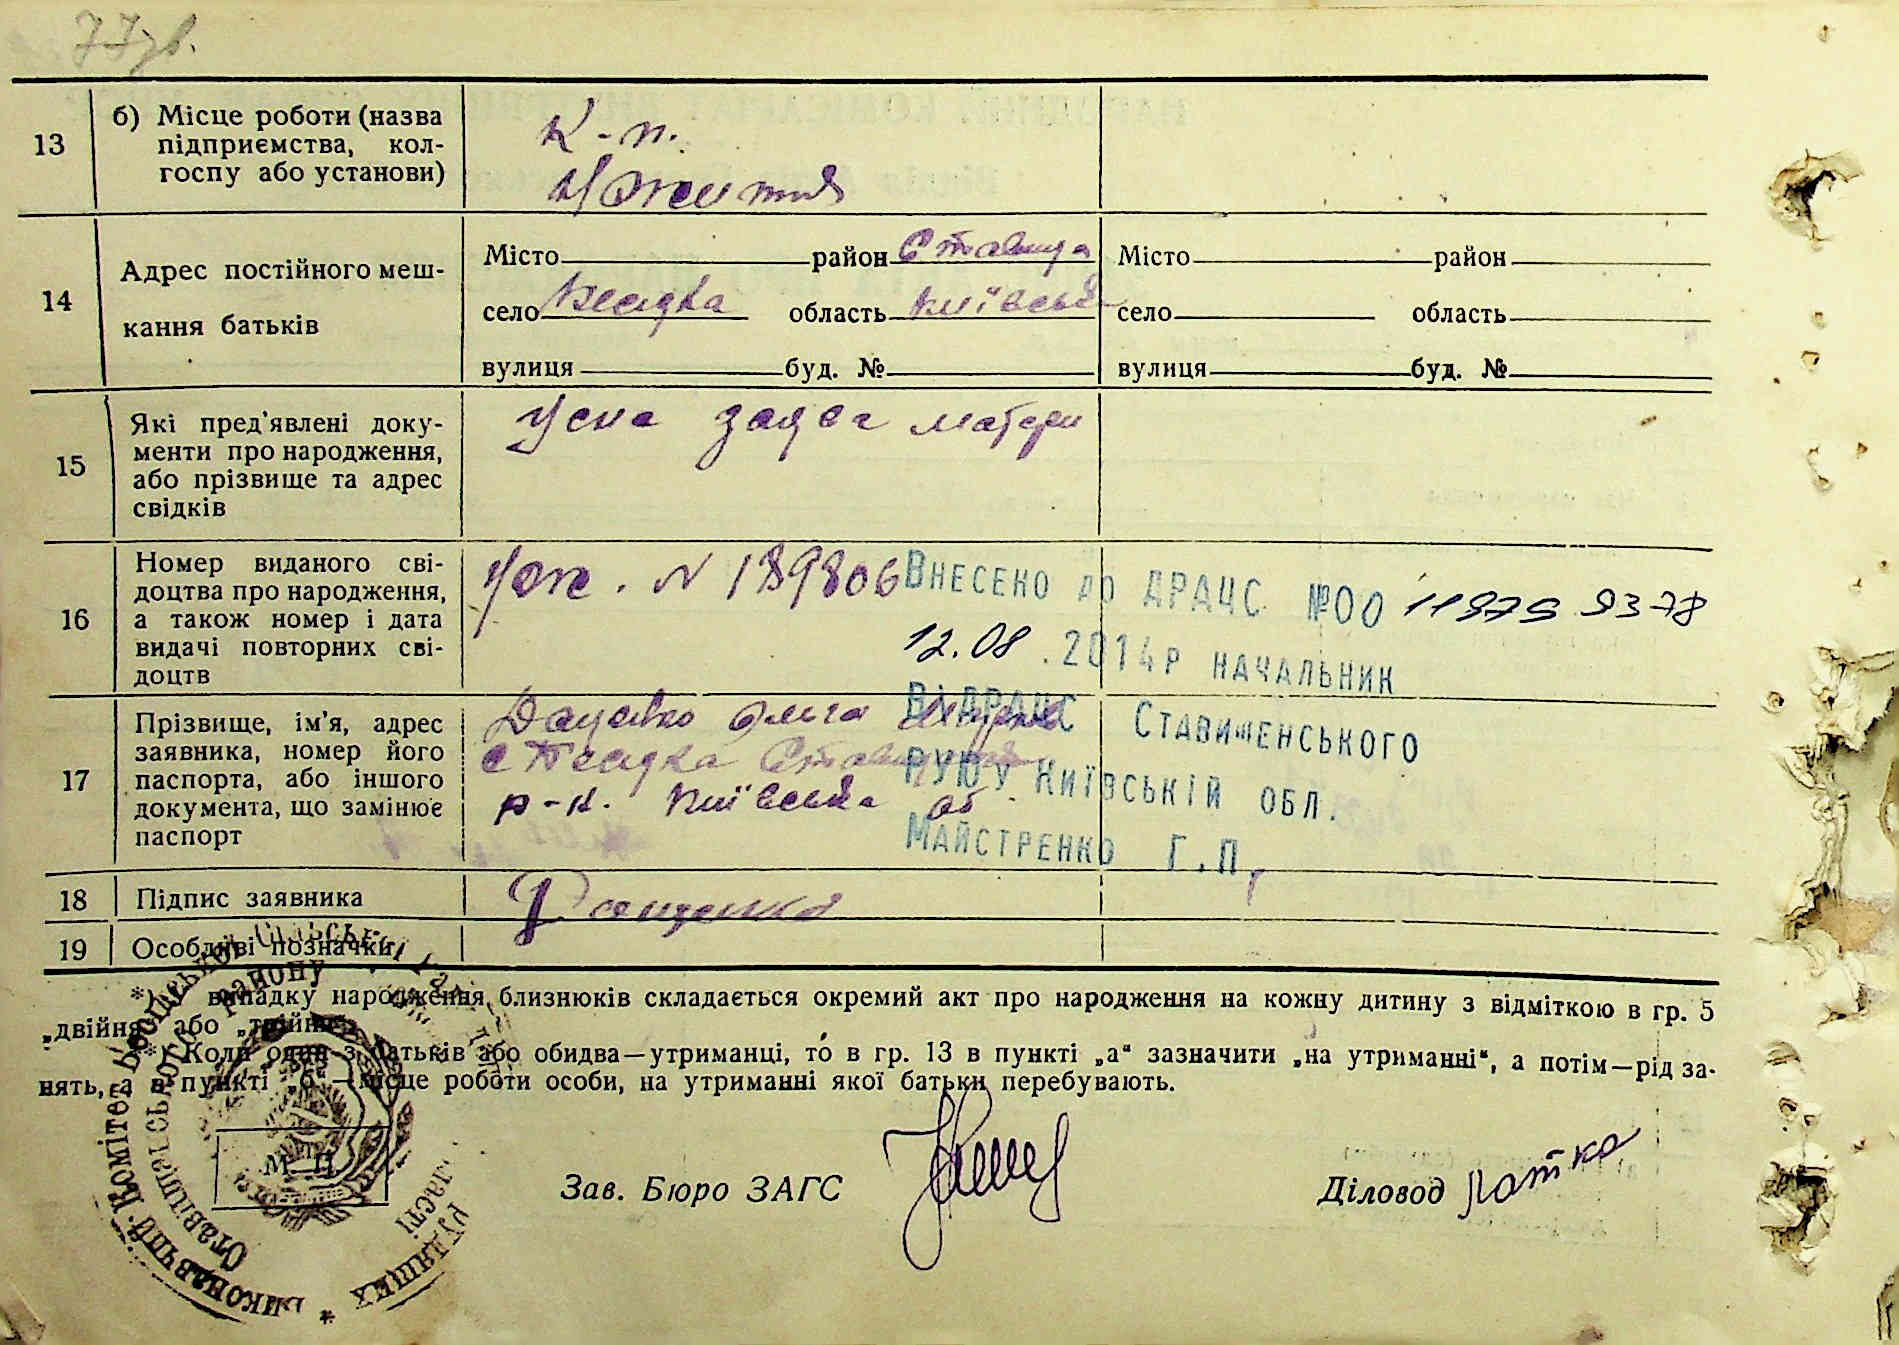 77зв.
13 б) Місце роботи (назва
підприємства, кол-
госпу або установи)
К-п.
14 Адрес постійного меш-
кання батьків
Місто район Ставищ
село Бесідка область Київська
вулиця буд. №
Місто район
село область
вулиця буд. №
15 Які пред'явлені доку-
менти про народження,
або прізвище та адрес
свідків
Усна заява матери
16 Номер виданого сві-
доцтва про народження,
а також номер і дата
видачі повторних сві-
доцтв
N 189806
Внесено до ДРАЦС №00
12.08.2014р начальник
ВДРАЦС Ставищенського
РУЮ у Київській обл.
Майстренко Г.П.
17 Прізвище, ім'я, адрес
заявника, номер його
паспорта, або іншого
документа, що замінює
паспорт
Ольга
с Бесідка
р-н. Київська об
18 Підпис заявника
19 Особливі позначки
* У випадку народження близнюків складається окремий акт про народження на кожну дитину з відміткою в гр. 5
„двійня" або „трійня".
** Коли один з батьків або обидва—утриманці, то в гр. 13 в пункті „а" зазначити „на утриманні", а потім—рід за-
нять, а в пункті „б"—місце роботи особи, на утриманні якої батьки перебувають.
М. П.
Зав. Бюро ЗАГС
Діловод
Виконавчий Комітет сільської ради
Ставищанського району
трудящих